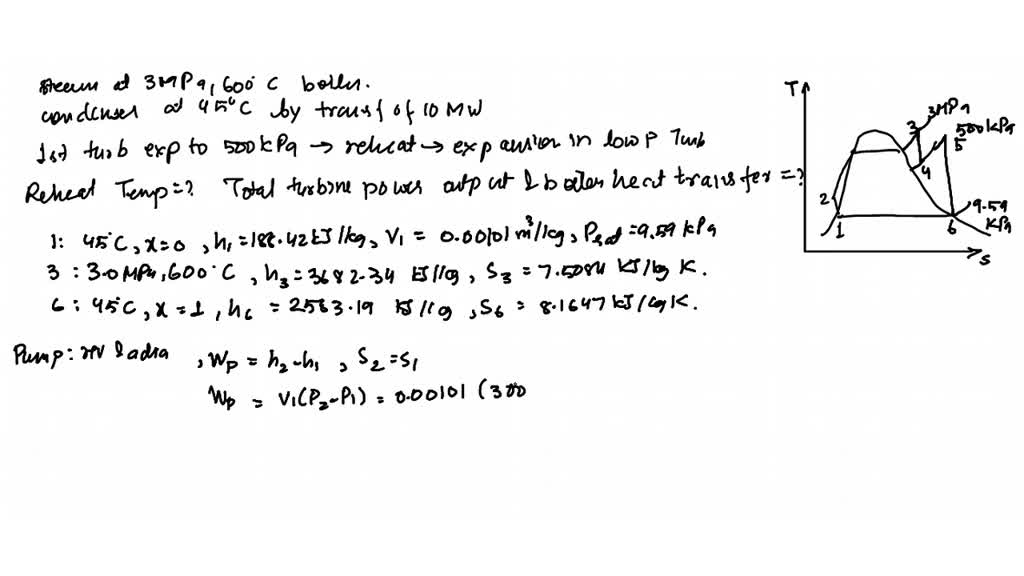 steam at 3MPa, 600°C boiler.
condenser at 45°C by transf of 10 MW
1st turb exp to 500kPa → reheat → expansion in low P Turb
Reheat Temp=? Total turbine power output & boiler heat transfer =?
1: 45°C, x=0, h₁=188.42kJ/kg, V₁ = 0.00101 m³/kg, Psat=9.59 kPa
3: 3.0MPa, 600°C, h₃=3682.34 kJ/kg, S₃ = 7.5084 kJ/kg K.
6: 45°C, x=1, h₆ = 2583.19 kJ/kg, S₆ = 8.1647 kJ/kg K.
Pump: rev & adia, Wp = h₂-h₁, S₂=S₁
Wp = V₁(P₂-P₁) = 0.00101 (300
T
3MPa
3
500kPa
5
4
2
9.59
kPa
1
6
s